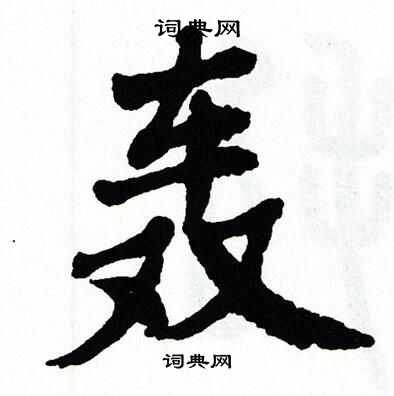 词典网
轰
词典网